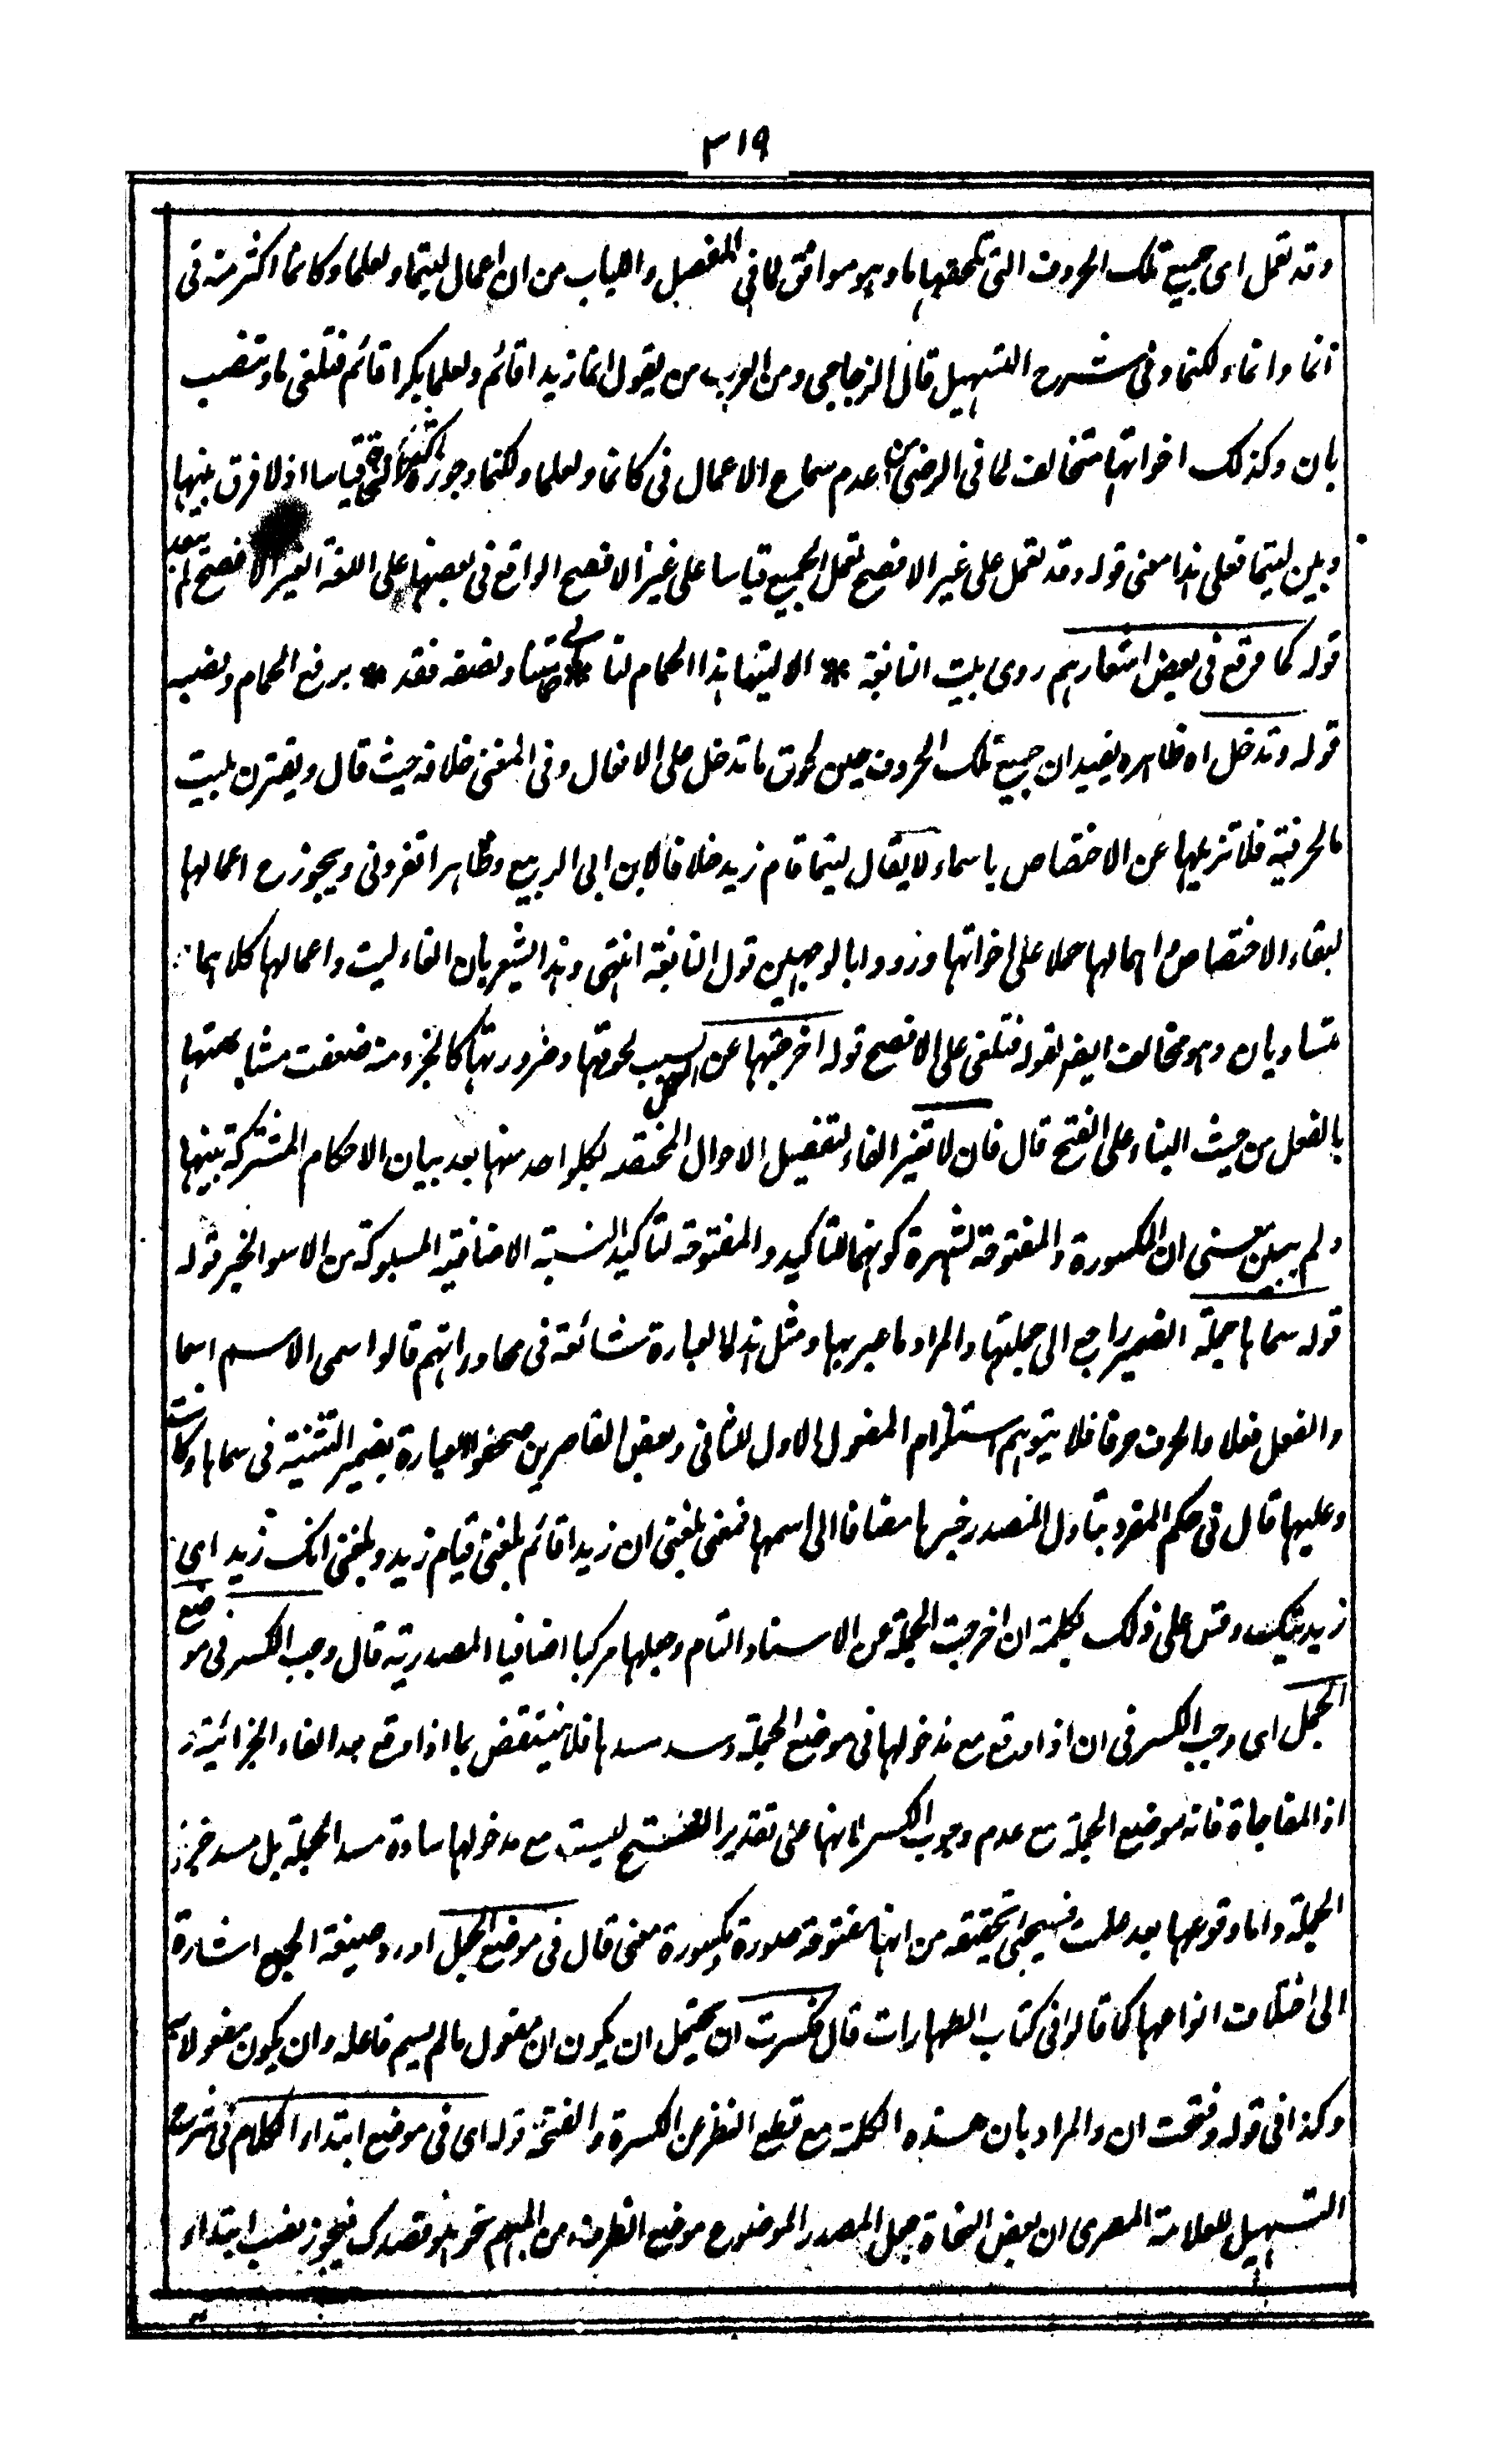 ٣١٩
وقد تعمل اى جميع تلك الحروف التى تلحقها ما وهو موافق لما فى المفصل واللباب من ان اعمال ليتما ولعلما وكانما اكثر منه فى
انما وانما ولكنما وفى شرح التسهيل قال الزجاجى ومن العرب من يقول انما زيدا قائم ولعلما بكرا قائم فتلغى ما وتنصب
بان وكذلك اخواتها متخالف لما فى الرضى من عدم سماع الاعمال فى كانما ولعلما ولكنما وجوزه اكثر النحاة قياسا اذ لا فرق بينها
وبين ليتما فعلى هذا معنى قوله وقد تعمل على غير الافصح تعمل الجميع قياسا على غير الافصح الواقع فى بعضها على اللغة الغير الافصح لم يبعد
قوله كما وقع فى بعض اشعارهم روى بيت النابغة * الا ليتما هذا الحمام لنا * الى حمامتنا ونصفه فقد * برفع الحمام ونصبه
قوله وتدخل اه ظاهره يفيد ان جميع تلك الحروف حين لحوق ما تدخل على الافعال وفى المغنى خلافه حيث قال ويقترن بليت
ما الحرفية فلا تزيلها عن الاختصاص باسماء لا يقال ليتما قام زيد خلافا لابن ابى الربيع وطاهر القزوينى ويجوز ح اعمالها
لبقاء الاختصاص واهمالها حملا على اخواتها ورووا بالوجهين قول النابغة انتهى وهذا يشعر بان الغاء ليت واعمالها كلاهما
متساويان وهو مخالف ايضا لقوله فتلغى على الافصح قوله اخرجتها عن العمل بسبب لحوقها وضرورتها كالجزء منه ضعفت مشابهتها
بالفعل من حيث البناء على الفتح قال فان لا تغير الفاء لتفصيل الاحوال المختصة لكل واحد منها بعد بيان الاحكام المشتركة بينها
ولم يبين معنى ان المكسورة والمفتوحة لشهرة كونهما للتاكيد والمفتوحة لتاكيد النسبة الاضافية المسبوكة من الاسم والخبر قوله
قوله سماها جملة الضمير راجع الى جملتها والمراد ما عبر بها ومثل هذه العبارة شائعة فى محاوراتهم قالوا سمى الاسم اسما
والفعل فعلا والحرف حرفا فلا يتوهم استلزام المفعول الاول للثانى وبعض القاصرين صحفوا العبارة بضمير التثنية فى سماها وكانت
وعليها قال فى حكم المفرد بتاول المصدر خبرها مضافا الى اسمها فمعنى بلغنى ان زيدا قائم بلغنى قيام زيد وبلغنى انك زيد اى
زيديتك وقس على ذلك فكلمة ان اخرجت الجملة عن الاسناد التام وجعلها مركبا اضافيا المصدرية قال وجب الكسر فى موضع
الجمل اى وجب الكسر فى ان اذا وقع مع مدخولها فى موضع الجملة وسد مسدها فلا ينتقض بما اذا وقع بعد الفاء الجزائية و
اذ المفاجاة فانه موضع الجملة مع عدم وجوب الكسر لانها على تقدير الفتح ليست مع مدخولها سادة مسد الجملة بل مسد جزء
الجملة واما وقوعها بعد علمت فسيجئ تحقيقه من انها مفتوحة صورة مكسورة معنى قال فى موضع الجمل اورد صيغة الجمع اشارة
الى اختلاف انواعها كما قالوا فى كتاب الطهارات قال فكسرت ان يحتمل ان يكون ان مفعول ما لم يسم فاعله وان يكون مفعولا
وكذا فى قوله وفتحت ان والمراد بان هذه الكلمة مع قطع النظر عن الكسرة والفتحة قوله اى فى موضع ابتداء الكلام فى شرح
التسهيل للعلامة المصرى ان بعض النحاة جعل المصدر الموضوع موضع الظرف من المبهم نحو هو قصدك فيجوز نصب ابتداء